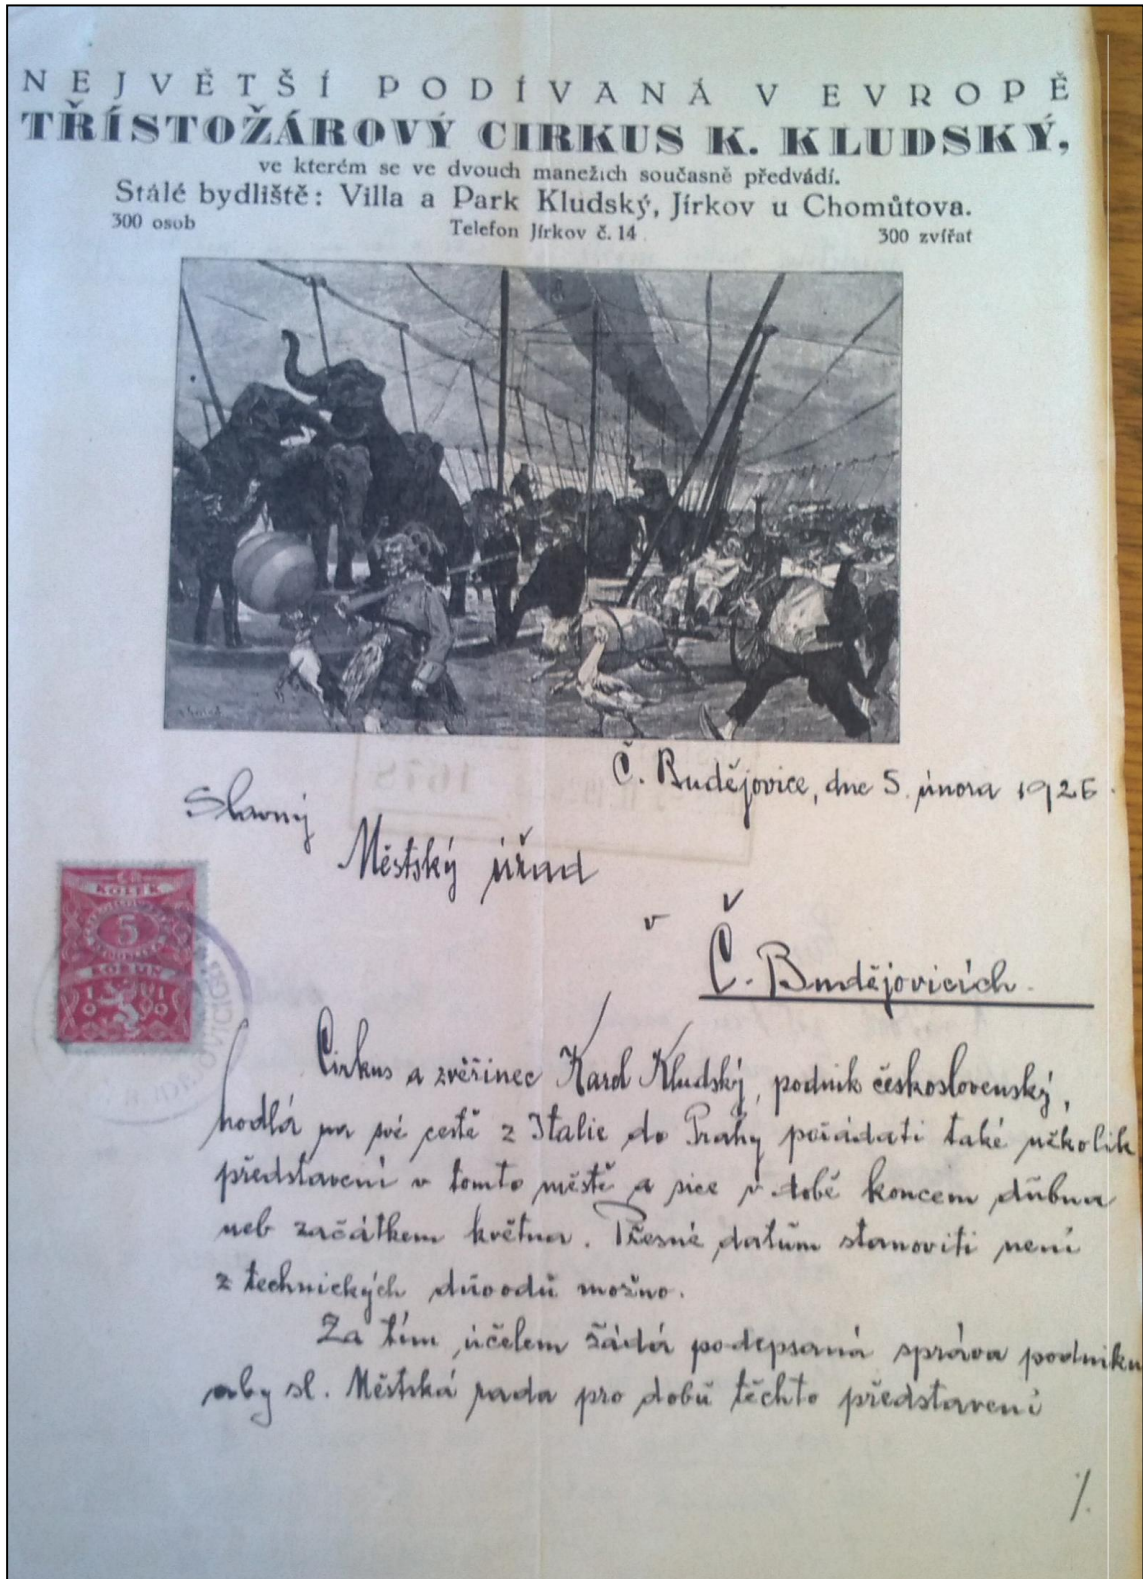 NEJVĚTŠÍ PODÍVANÁ V EVROPĚ
TŘÍSTOŽÁROVÝ CIRKUS K. KLUDSKÝ,
ve kterém se ve dvouch manežich současně předvádí.
Stálé bydliště: Villa a Park Kludský, Jírkov u Chomůtova.
300 osob Telefon Jírkov č. 14 300 zvířat
Č. Budějovice, dne 5. února 1926.
Slavný
Městský úřad
v
Č. Budějovicích.
KOLEK
5
KORUN
Cirkus a zvěřinec Karol Kludský, podnik československý,
hodlá na své cestě z Italie do Prahy pořádati také několik
představení v tomto městě a sice v době koncem dubna
neb začátkem května. Přesné datům stanoviti není
z technických důvodů možno.
Za tím účelem žádá podepsaná správa podniku
aby sl. Městská rada pro dobu těchto představení
./.